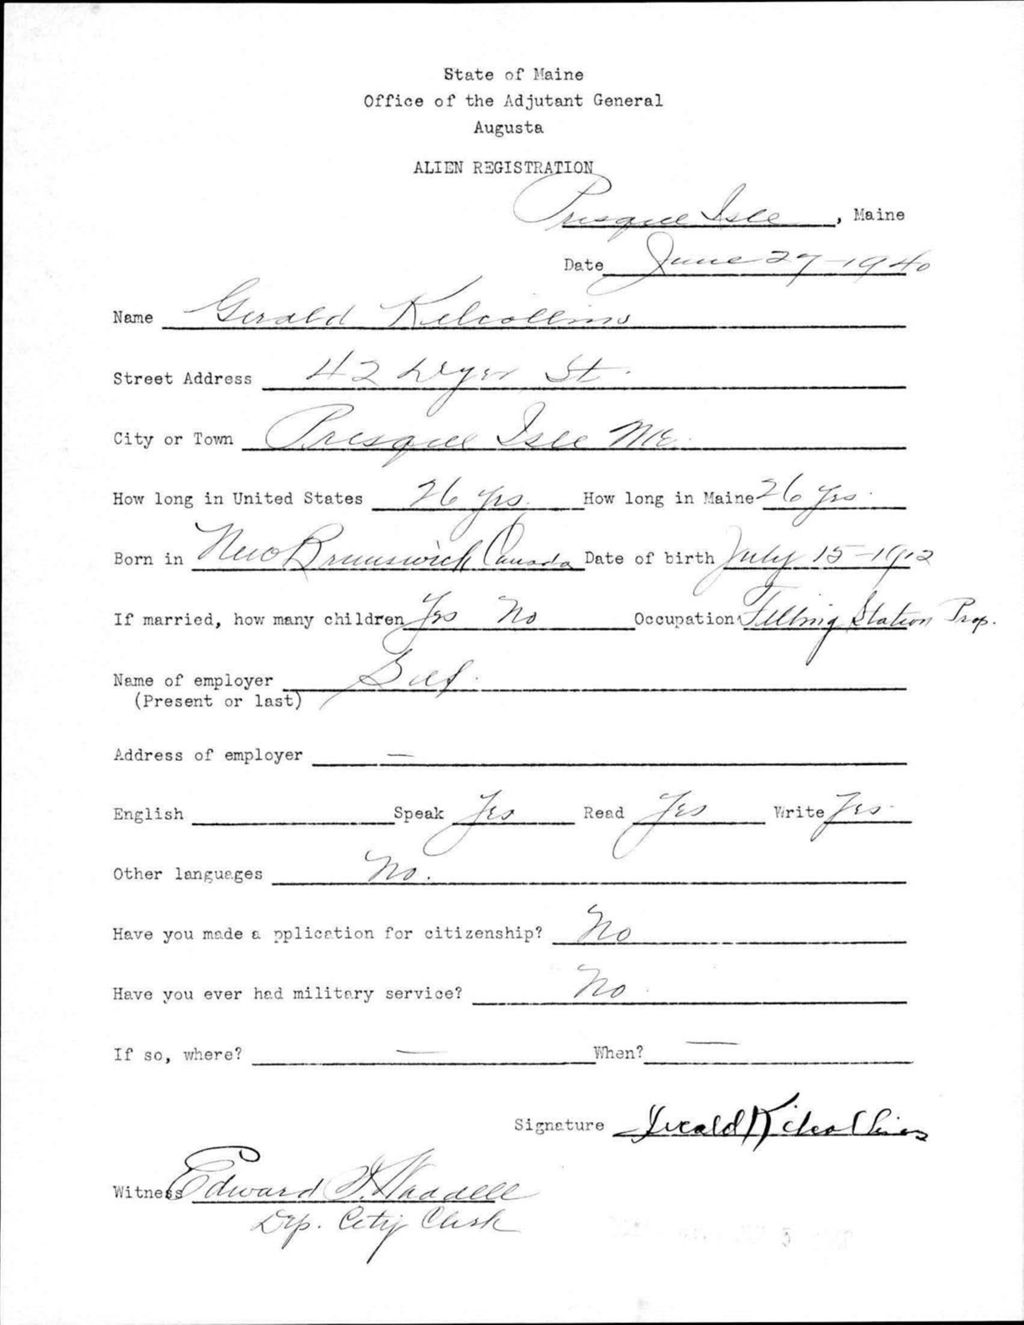 State of Maine
Office of the Adjutant General
Augusta
ALIEN REGISTRATION
Presque Isle, Maine
Date June 27-1940
Name Gerald Kilcollins
Street Address 42 Dyer St.
City or Town Presque Isle Me.
How long in United States 26 Yrs. How long in Maine 26 Yrs.
Born in New Brunswick Canada Date of birth July 15-1912
If married, how many children Yes No Occupation Filling Station Prop.
Name of employer Self.
(Present or last)
Address of employer —
English Speak Yes Read Yes Write Yes.
Other languages No.
Have you made a pplication for citizenship? No
Have you ever had military service? No.
If so, where? — When? —
Signature Gerald Kilcollins
Witness Edward Waddell
Dep. City Clerk